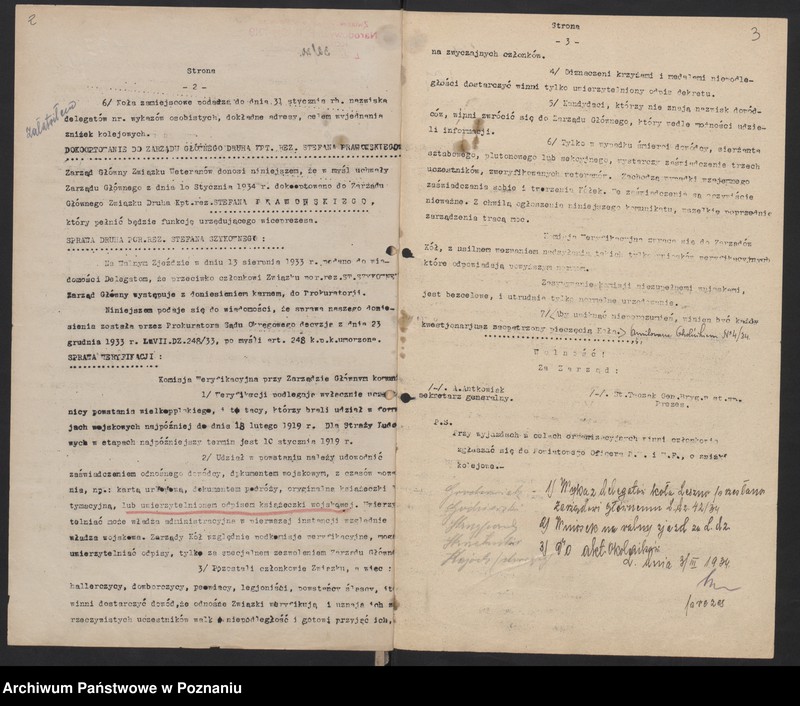 2
Strona
- 2 -
6/ Koła zamiejscowe podadzą do dnia 31 stycznia rb. nazwiska
delegatów nr. wykazów osobistych, dokładne adresy, celem wyjednania
zniżek kolejowych.
Załatwiono
DOKOOPTOWANIE DO ZARZĄDU GŁÓWNEGO DRUHA KPT. REZ. STEFANA
Zarząd Główny Związku Weteranów donosi niniejszem, że w myśl uchwały
Zarządu Głównego z dnia 10 Stycznia 1934 r. dokooptowano do Zarządu
Głównego Związku Druha Kpt.rez. STEFANA
który pełnić będzie funkcję urzędującego wiceprezesa.
SPRAWA DRUHA POR.REZ. STEFANA SZYKOWNEGO :
Na Walnym Zjeździe w dniu 13 sierpnia 1933 r. podano do wia-
domości Delegatom, że przeciwko członkowi Związku por.rez.
Zarząd Główny występuje z doniesieniem karnem, do Prokuratorji.
Niniejszem podaje się do wiadomości, że sprawa naszego donie-
sienia została przez Prokuratora Sądu Okręgowego decyzją z dnia 23
grudnia 1933 r. L.VII.DZ.248/33, po myśli art. 248 k.p.k. umorzona.
SPRAWA WERYFIKACJI :
Komisja Weryfikacyjna przy Zarządzie Głównym
1/ Weryfikacji podlegają wyłącznie
nicy powstania wielkopolskiego, i to tacy, którzy brali udział w
jach wojskowych najpóźniej do dnia 18 lutego 1919 r. Dla Straży
wych w etapach najpóźniejszy termin jest 10 stycznia 1919 r.
2/ Udział w powstaniu należy udowodnić
zaświadczeniem odnośnego dowódcy, dokumentem wojskowym, z czasów
nia, np.: kartą urlopową, dokumentem podróży, oryginalną książeczki
tymacyjną, lub uwierzytelnionym odpisem książeczki wojskowej.
telniać może władza administracyjna w pierwszej instancji względnie
władza wojskowa. Zarządy Kół względnie podkomisje weryfikacyjne,
uwierzytelniać odpisy, tylko za specjalnem zezwoleniem Zarządu
3/ Pozostali członkowie Związku, a więc :
hallerczycy, dowborczycy, peowiacy, legjoniści, powstańcy śląscy,
winni dostarczyć dowód, że odnośne Związki weryfikują i uznają ich
rzeczywistych uczestników walk o niepodległość i gotowi przyjąć ich,
3
Strona
- 3 -
na zwyczajnych członków.
4/ Odznaczeni krzyżami i medalami niepodle-
głości dostarczyć winni tylko uwierzytelniony odpis dekretu.
5/ Kandydaci, którzy nie znają nazwisk dowód-
ców, winni zwrócić się do Zarządu Głównego, który wedle możności udzie-
li informacji.
6/ Tylko w wypadku śmierci dowódcy, sierżanta
sztabowego, plutonowego lub sekcyjnego, wystarczy zaświadczenie trzech
uczestników, zweryfikowanych weteranów. Zachodzą wypadki wzajemnego
zaświadczania sobie i tworzenia kółek. Te zaświadczenia są oczywiście
nieważne. Z chwilą ogłoszenia niniejszego komunikatu, wszelkie poprzednie
zarządzenia tracą moc.
Komisja Weryfikacyjna zwraca się do Zarządów
Kół, z usilnem wezwaniem nadsyłania takich tylko wniosków weryfikacyjnych
które odpowiadają powyższym normom.
Zasypywanie komisji niezupełnymi wnioskami,
jest bezcelowe, i utrudnia tylko normalne urzędowanie.
7/ By uniknąć nieporozumień, winien być każdy
kwestjonarjusz zaopatrzony pieczęcią Koła.
Wolność!
Za Zarząd:
/-/. A.Antkowiak
sekretarz generalny.
/-/. St.Taczak Gen.Bryg.w st.sp.
Prezes.
P.S.
Przy wyjazdach w celach organizacyjnych winni członkowie
zgłaszać się do Powiatowego Oficera P.W. i W.F., o zniżki
kolejowe.-
1) Wykaz delegatów koła Leszno przesłano
zarządowi głównemu L.dz. 42/34
2) Wniosek na walny zjazd za L.dz.
3) akt. Okólników
L. dnia 3/III 1934
prezes